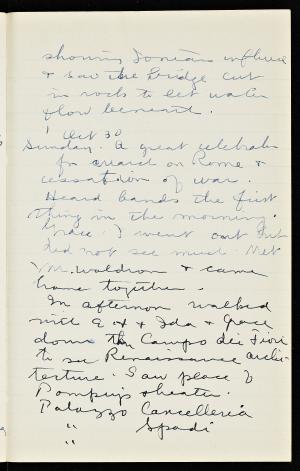 showing Ionian influence
& saw the bridge cut
in rocks to let water
flow beneath.
Oct 30
Sunday. A great celebration
for march on Rome &
cessation of war.
Heard bands the first
thing in the morning.
Grace & I went out but
did not see much. Met
Mr. Waldron & came
home together.
In afternoon walked
with & Ida & Grace
down the Campo dei Fiori
to see Renaissance archi-
tecture. Saw place of
Pompey's theater.
Palazzo Cancelleria
" Spadi
"